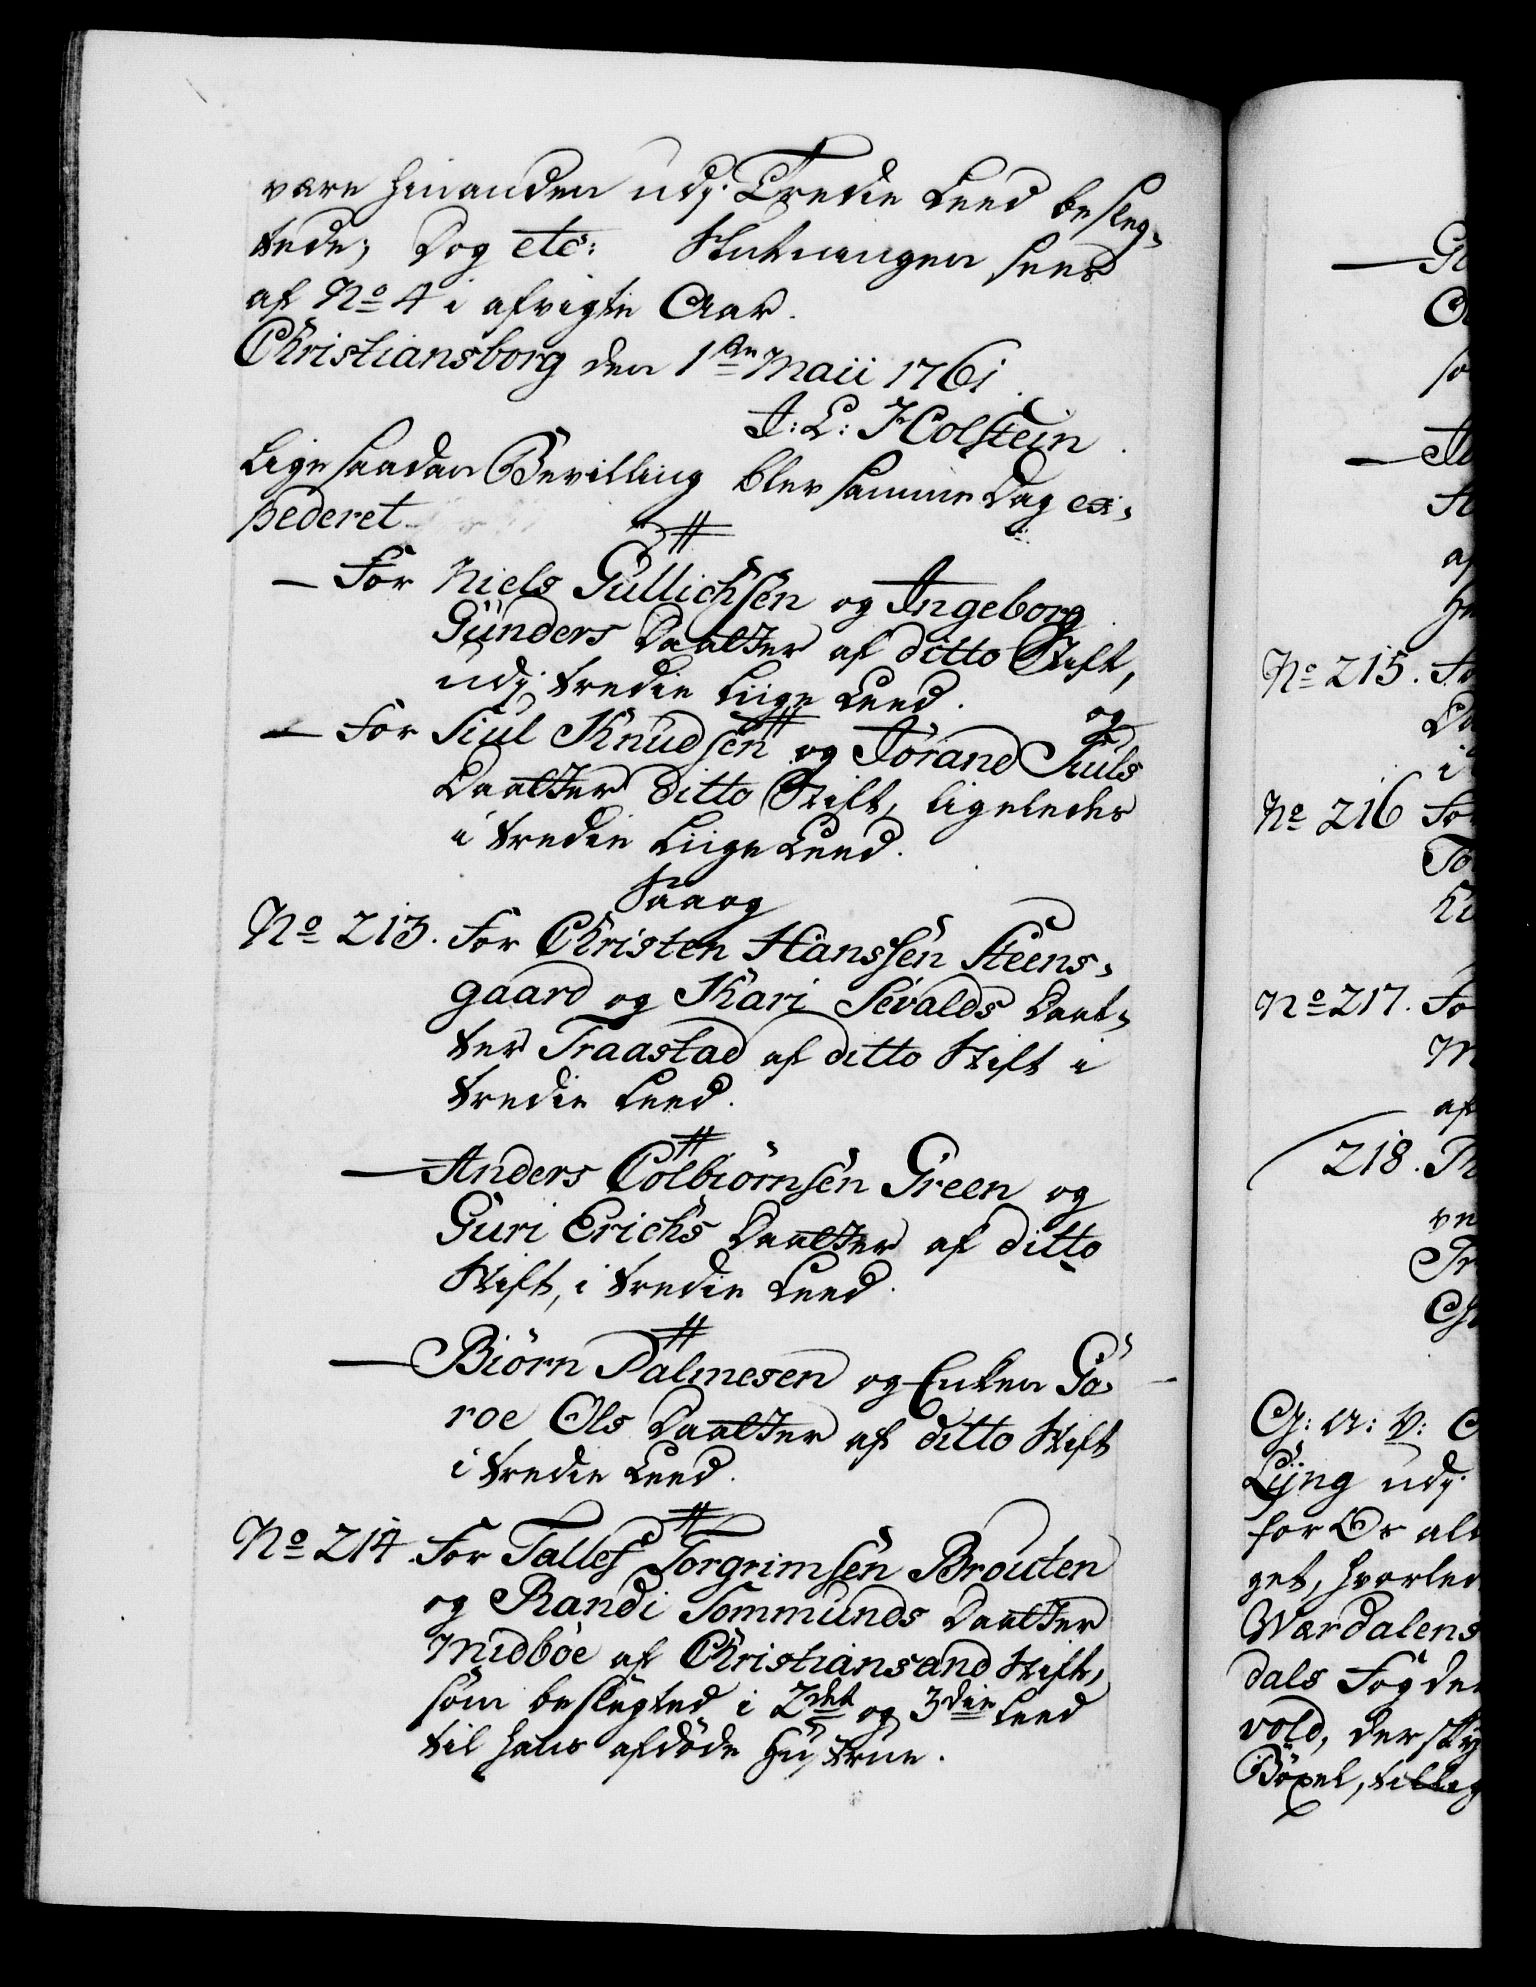 være hinanden udj Tredie Leed besleg-
tede; Dog etc: Slutningen sees
af No 4 i afvigte Aar.
Christiansborg den 1te Maii 1761
J: L: Holstein
Lige saadan Bevilling blev samme Dag ex-
pederet
— For Niels Gullichsen og Ingeborg
Gunders Daatter af ditto Stift,
udj tredie Liige Leed.
og
— For Siul Knudsen og Jorand Siuls
Daatter ditto Stift, ligeledes
i tredie Liige Leed.
Saa og
No 213. For Christen Hanssen Steens-
gaard og Kari Sevalds Daat-
ter Traastad af ditto Stift i
tredie Leed.
— Anders Colbiørnsen Green og
Guri Erichs Daatter af ditto
Stift, i tredie Leed.
— Biørn Palmesen og Enken Gø-
roe Ols Daatter af ditto Stift
i tredie Leed.
No 214. For Tallef Torgrimsen Brouten
og Randi Tommunds Daatter
Midbøe af Christiansand Stift,
som beslegted i 2det og 3die Leed
til hans afdøde Hustrue.
No 215.
No 216 For
No 217. For
af
218.
G: A: V:
Lyng udj
for Os al
get, hvorled
Værdalens
dals Fogder
vold, der sky
Böxel, tilleg